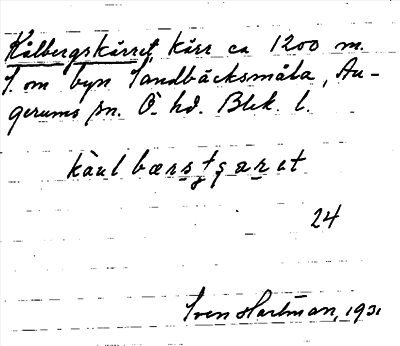 Kålbergskärret, kärr ca 1200 m.
S. om byn Sandbäcksmåla, Au-
gerums sn. Ö. hd. Blek. l.
kàul bærs
24
Sven Hartman, 1931